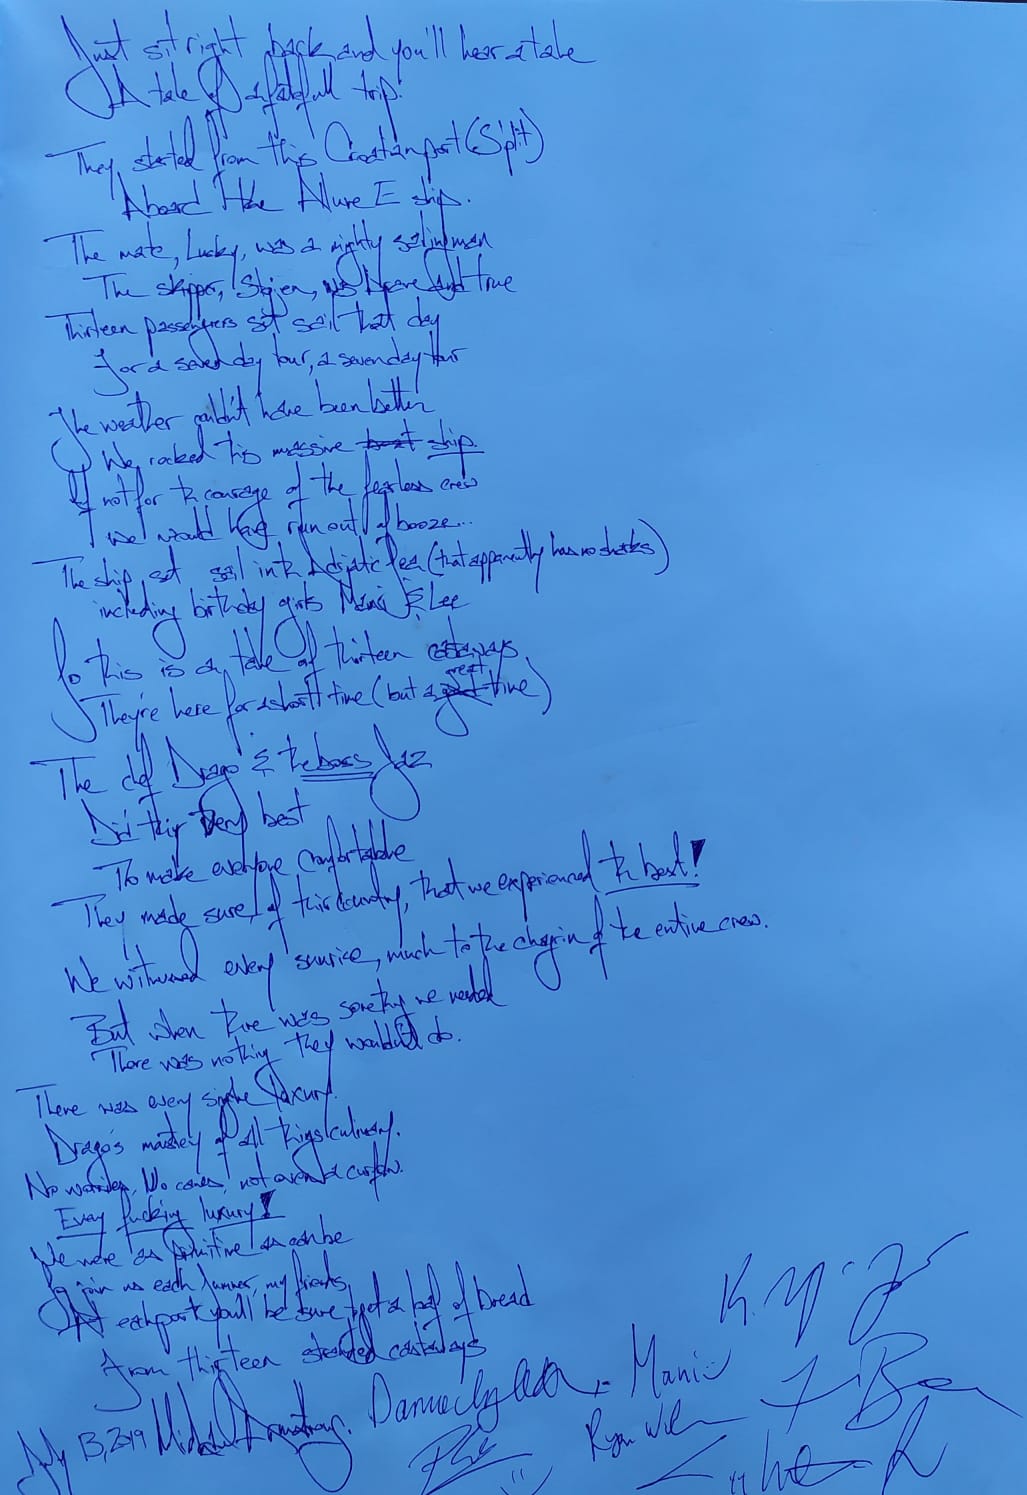 Just sit right back and you'll hear a tale
A tale of a fatefull trip.
They started from this Croatian port (Split)
Aboard the Allure E ship.
The mate, Lucky, was a mighty sailing man
The skipper, Stojen, was brave and true
Thirteen passengers set sail that day
For a seven day tour, a seven day tour
The weather couldn't have been better
We rocked this massive boat ship.
If not for the courage of the fearless crew
We would have run out of booze...
The ship set sail in th Adriatic Sea (that apparently has no sharks)
including birthday girls Manü & Lee
So this is a tale of thirteen castaways
They're here for a short time (but a good great time)
The chef Drago & the boss Jaz
Did their very best
To make everyone comfortable
They made sure, of this country, that we experienced the best!
We witnessed every sunrise, much to the chagrin of the entire crew.
But when there was something we needed
There was nothing they wouldn't do.
There was every single luxury.
Drago's mastery of all things culinary.
No worries, No cares, not even a curfew.
Every fucking luxury!
We were as primitive as can be
So join us each summer, my friends,
At each port you'll be sure to get a loaf of bread
From thirteen stranded castaways
July 13, 2019 Armstrong.
Manü
Ryan